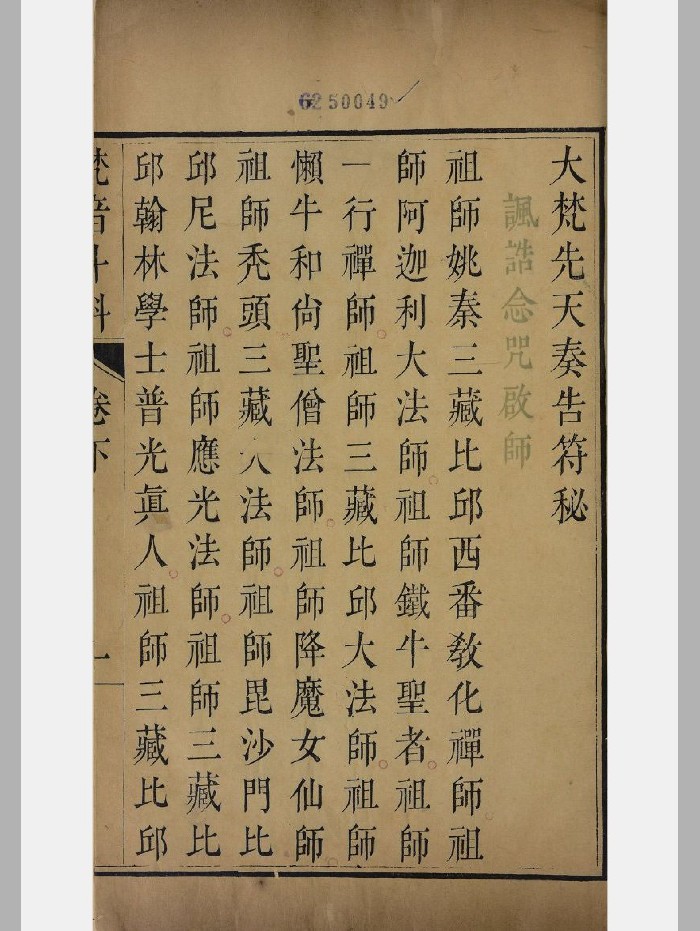 6250049
大梵先天奏告符秘
諷誥念咒啟師
祖師姚秦三藏比邱西番教化禪師祖
師阿迦利大法師祖師鐵牛聖者祖師
一行禪師祖師三藏比邱大法師祖師
懶牛和尙聖僧法師祖師降魔女仙師
祖師禿頭三藏大法師祖師毘沙門比
邱尼法師祖師應光法師祖師三藏比
邱翰林學士普光眞人祖師三藏比邱
梵音斗科 卷下 一